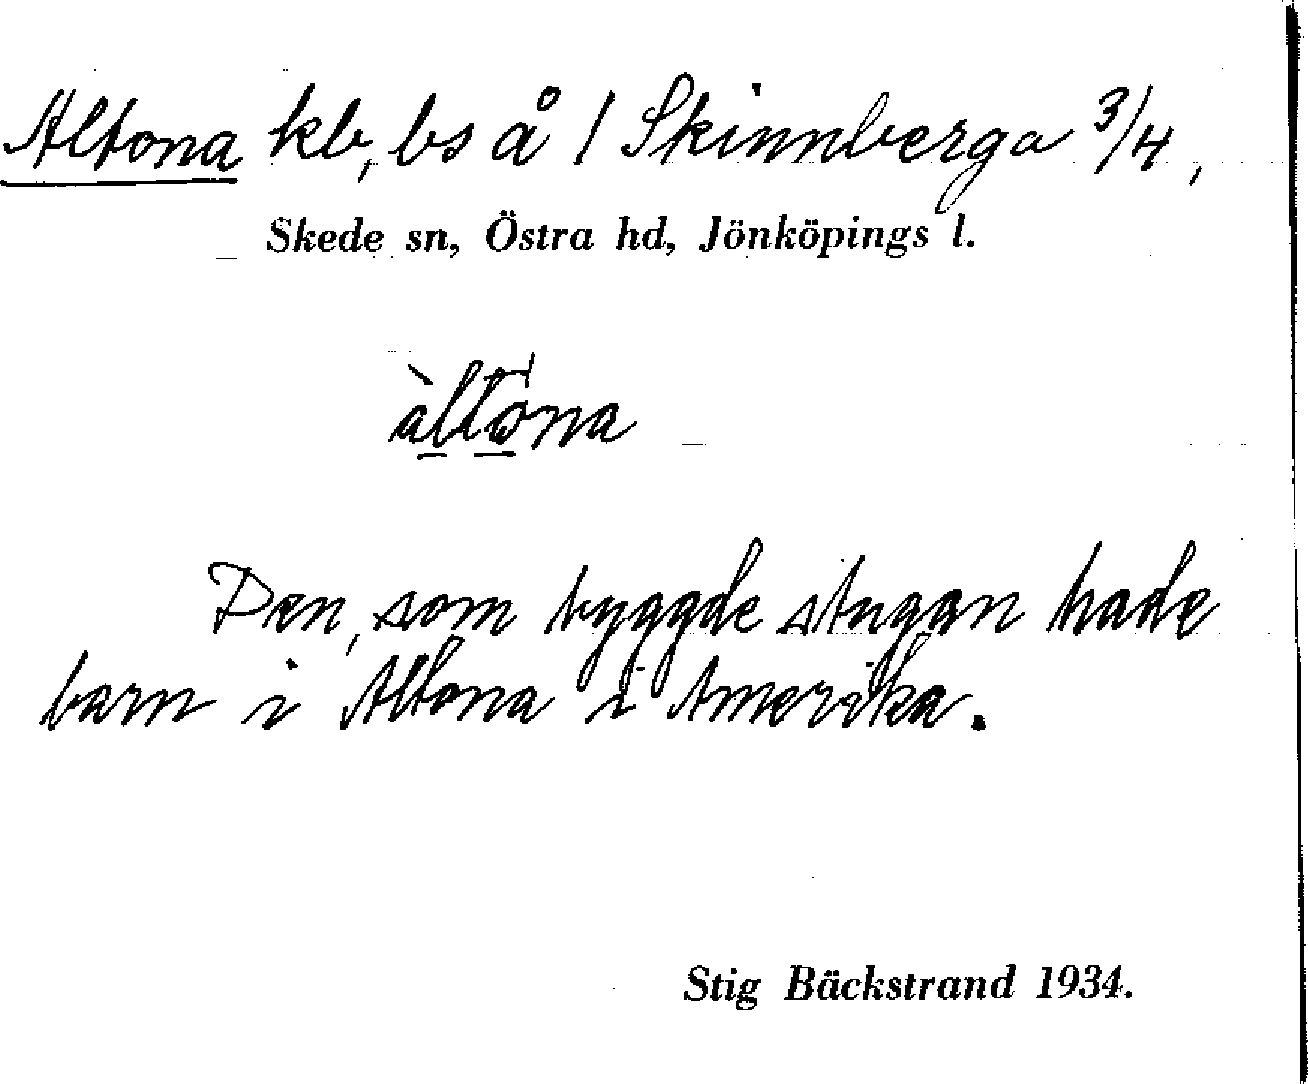 Altona kb, bs å / Skinnberga 3/4,
Skede sn, Östra hd, Jönköpings l.
àltona
Den, som byggde stugan hade
barn i Altona i Amerika.
Stig Bäckstrand 1934.